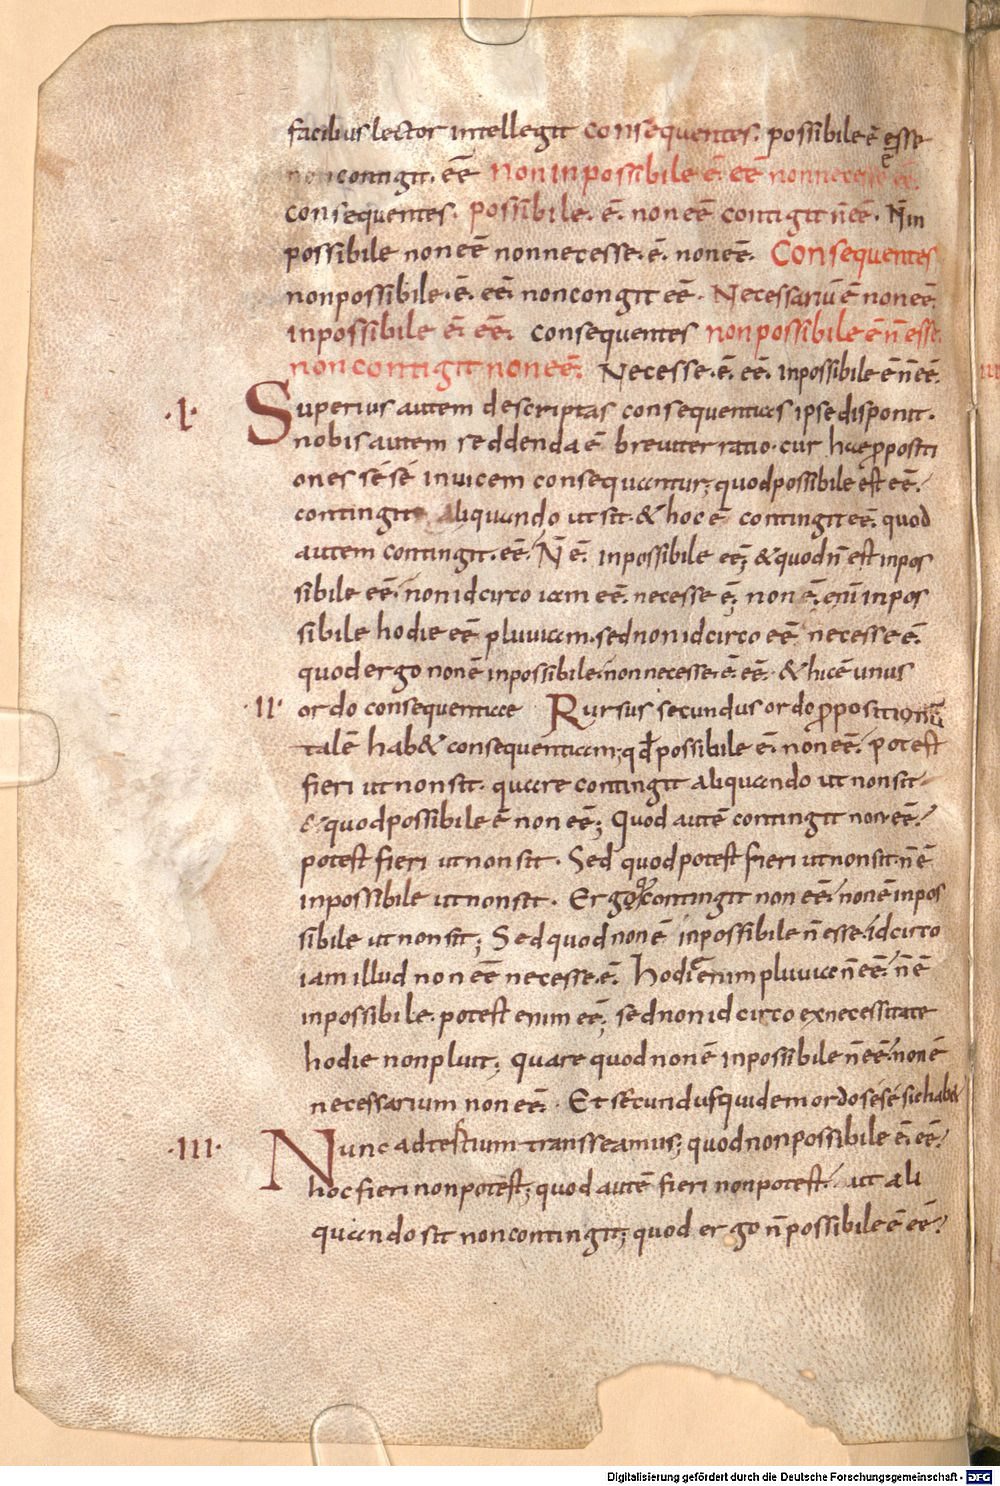 facibus lector intellegit consequentes. possibile ē esse
non contigit. eē Non inpossibile. ē. eē non necesse eē.
consequentes. possibile. ē. non eē contigit n̄ eē. N̄ in
possibile non eē non necesse. ē. non eē. Consequentes
non possibile. ē. eē. non congit eē. Necessariū ē non eē.
inpossibile ē. eē. consequentes non possibile ē n̄ esse.
non contigit non eē. Necesse. ē. eē. inpossibile ē n̄ eē.
·I· Superius autem descriptas consequentias ipse disponit.
nobis autem reddenda ē breviter ratio. cur hae propositi
ones sé sé invicem consequantur; quod possibile est eē.
contingit aliquando ut sit. & hoc ē contingit eē. quod
autem contingit. eē. N̄ ē. inpossibile eē; & quod n̄ est inpos
sibile eē. non idcirco iam eē. necesse ē; non ē. eni inpos
sibile hodie eē pluviam. sed non idcirco eē necesse ē.
quod ergo non ē inpossibile. non necesse. ē. eē. & hic ē unus
·II· ordo consequentiae Rursus secundus ordo propositionū
talē hab& consequentiam; qđ possibile ē. non eē. potest
fieri ut non sit. quare contingit aliquando ut non sit
& quod possibile ē non eē; Quod autē contingit non eē.
potest fieri ut non sit. Sed quod potest fieri ut non sit. n̄ ē
inpossibile ut non sit. Ergo qđ contingit non eē. non ē inpos
sibile ut non sit; Sed quod non ē inpossibile n̄ esse. idcirco
iam illud non eē necesse. ē. Hodie enim pluvia n̄ eē. n̄ ē
inpossibile. potest enim eē; sed non idcirco ex necessitate
hodie non pluit; quare quod non ē inpossibile n̄ eē. non ē
necessarium non eē. Et secundus quidem ordo sé sé sic hab&
·III· Nunc ad tertium transseamus; quod non possibile ē. eē.
hoc fieri non potest; quod autē fieri non potest. ut ali
quando sit non contingit; quod ergo n̄ possibile ē eē.
Digitalisierung gefördert durch die Deutsche Forschungsgemeinschaft - DFG